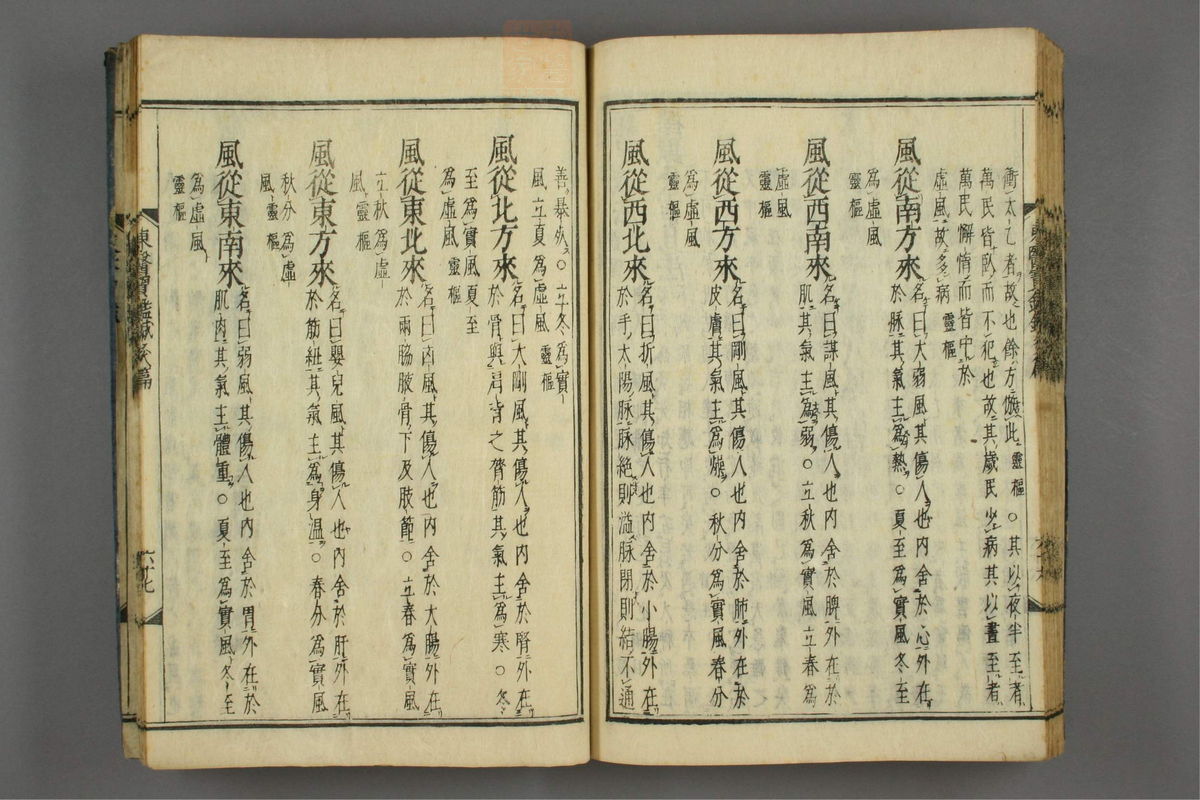 衝太乙者故也餘方倣此靈樞○其以夜半至者
萬民皆臥而不犯也故其歲民少病其以晝至者
萬民懈惰而皆中於
虛風故多病靈樞
風從南方來名曰大弱風其傷人也內舍於心外在
於脉其氣主爲熱○夏至爲實風冬至
爲虛風
靈樞
風從西南來名曰謀風其傷人也內舍於脾外在於
肌其氣主爲弱○立秋爲實風立春爲
虛風
靈樞
風從西方來名曰剛風其傷人也內舍於肺外在於
皮膚其氣主爲燥○秋分爲實風春分
爲虛風
靈樞
風從西北來名曰折風其傷人也內舍於小腸外在
於手太陽脉脉絕則溢脉閉則結不通
善暴死○立冬爲實
風立夏爲虛風靈樞
風從北方來名曰大剛風其傷人也內舍於腎外在
於骨與肩背之膂筋其氣主爲寒○冬
至爲實風夏至
爲虛風靈樞
風從東北來名曰凶風其傷人也內舍於大腸外在
於兩脇腋骨下及肢節○立春爲實風
立秋爲虛
風靈樞
風從東方來名曰嬰兒風其傷人也內舍於肝外在
於筋紐其氣主爲身温○春分爲實風
秋分爲虛
風靈樞
風從東南來名曰弱風其傷人也內舍於胃外在於
肌肉其氣主體重○夏至爲實風冬至
爲虛風
靈樞
東醫寶鑑
六十七